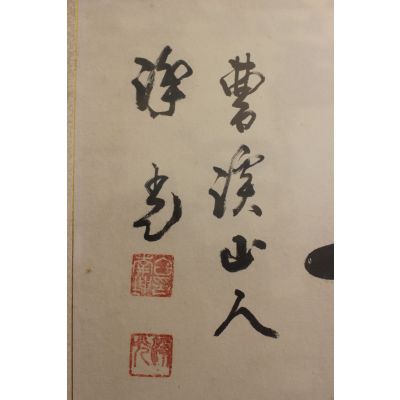 曹溪山人
淨光